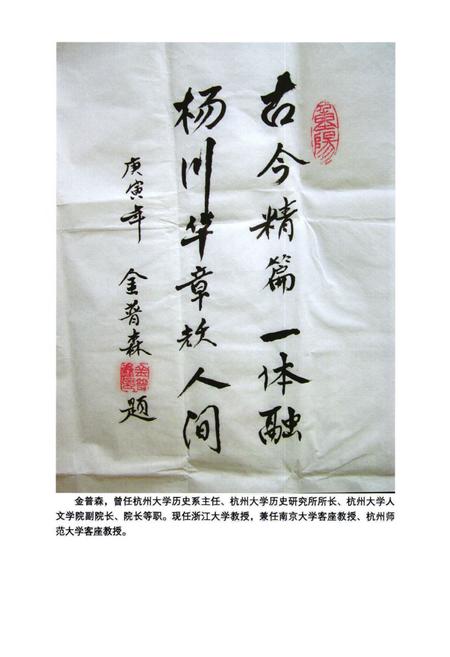 古今精篇一体融
杨川华章放人间
庚寅年 金普森题
金普森，曾任杭州大学历史系主任、杭州大学历史研究所所长、杭州大学人
文学院副院长、院长等职。现任浙江大学教授，兼任南京大学客座教授、杭州师
范大学客座教授。